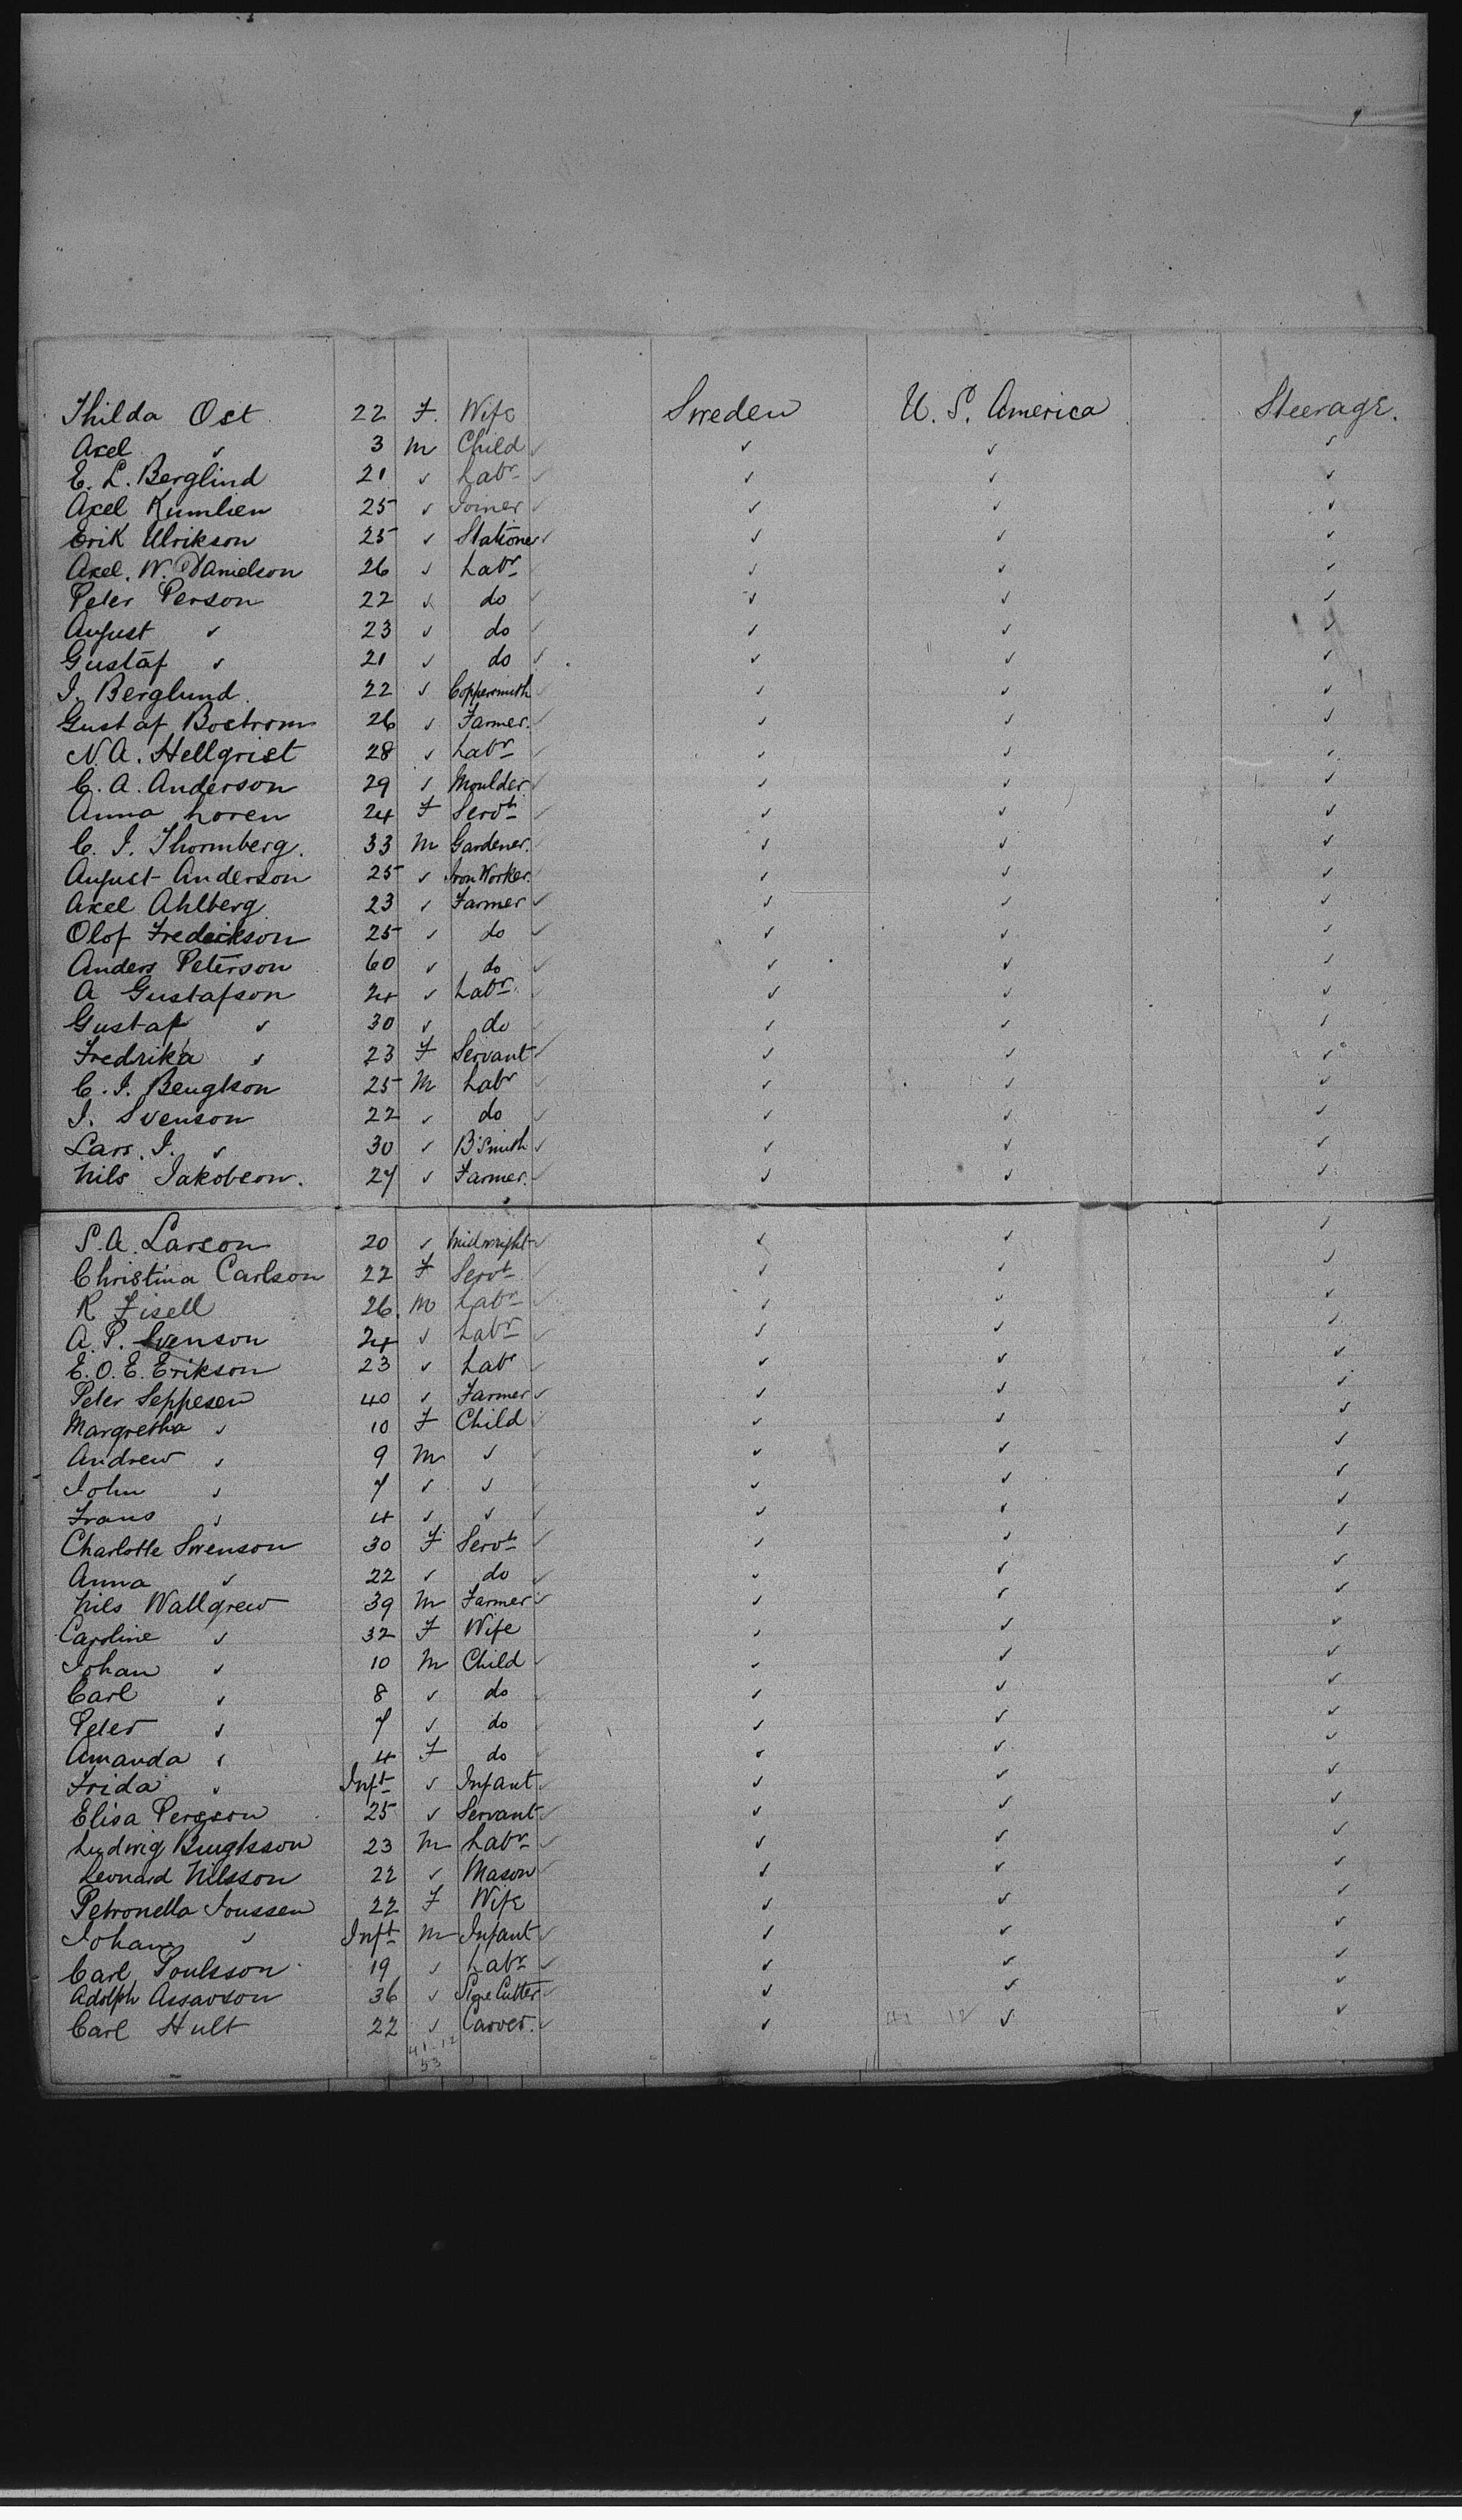 Thilda Ost 22 F. Wife Sweden U. S. America Steerage.
Axel ✓ 3 m Child ✓ ✓ ✓ ✓
E. L. Berglind 21 ✓ Labr ✓ ✓ ✓ ✓
Axel Kumlien 25 ✓ Joiner ✓ ✓ ✓ ✓
Erik Ulrikson 25 ✓ Stationer ✓ ✓ ✓ ✓
Axel. W. Danielson 26 ✓ Labr ✓ ✓ ✓ ✓
Peter Person 22 ✓ do ✓ ✓ ✓ ✓
August ✓ 23 ✓ do ✓ ✓ ✓ ✓
Gustaf ✓ 21 ✓ do ✓ ✓ ✓ ✓
I. Berglund. 22 ✓ Coppersmith ✓ ✓ ✓ ✓
Gustaf Bostrom 26 ✓ Farmer. ✓ ✓ ✓ ✓
N. A. Hellqrist 28 ✓ Labr ✓ ✓ ✓ ✓
C. A. Anderson 29 ✓ Moulder ✓ ✓ ✓ ✓
Anna Loren 24 F Servt ✓ ✓ ✓ ✓
C. I. Thornberg. 33 m Gardener. ✓ ✓ ✓
August Anderson 25 ✓ Iron Worker. ✓ ✓ ✓
Axel Ahlberg 23 ✓ Farmer ✓ ✓ ✓ ✓
Olof Fredeickson 25 ✓ do ✓ ✓ ✓ ✓
Anders Peterson 60 ✓ do ✓ ✓ ✓ ✓
A Gustafson 24 ✓ Labr. ✓ ✓ ✓ ✓
Gustaf ✓ 30 ✓ do ✓ ✓ ✓ ✓
Fredrika ✓ 23 F Servant ✓ ✓ ✓ ✓
C. I. Bengtson 25 M Labr ✓ ✓ ✓ ✓
I. Svenson 22 ✓ do ✓ ✓ ✓ ✓
Lars. I. ✓ 30 ✓ B'Smith ✓ ✓ ✓ ✓
Nils Jakobson. 27 ✓ Farmer. ✓ ✓ ✓ ✓
S. A. Larson 20 ✓ ✓ ✓ ✓ ✓
Christina Carlson 22 F Servt ✓ ✓ ✓ ✓
R Fisell 26. M Labr ✓ ✓ ✓ ✓
A. P. Svenson 24 ✓ Labr ✓ ✓ ✓ ✓
E. O. E. Erikson 23 ✓ Labr ✓ ✓ ✓ ✓
Peter Seppesen 40 ✓ Farmer ✓ ✓ ✓ ✓
Margretha ✓ 10 F Child ✓ ✓ ✓ ✓
Andrew ✓ 9 m ✓ ✓ ✓ ✓ ✓
John ✓ 7 ✓ ✓ ✓ ✓ ✓ ✓
Frans ✓ 4 ✓ ✓ ✓ ✓ ✓ ✓
Charlotte Swenson 30 F Servt ✓ ✓ ✓ ✓
Anna ✓ 22 ✓ do ✓ ✓ ✓ ✓
Nils Wallgrew 39 M Farmer ✓ ✓ ✓ ✓
Caroline ✓ 32 F Wife ✓ ✓ ✓
Johan ✓ 10 M Child ✓ ✓ ✓ ✓
Carl ✓ 8 ✓ do ✓ ✓ ✓ ✓
Peter ✓ 7 ✓ do ✓ ✓ ✓ ✓
Amanda ✓ 4 F do ✓ ✓ ✓ ✓
Frida ✓ Inft ✓ Infant ✓ ✓ ✓ ✓
Elisa Persson 25 ✓ Servant ✓ ✓ ✓ ✓
Ludwig Bengtsson 23 M Labr ✓ ✓ ✓ ✓
Leonard Nilsson 22 ✓ Mason ✓ ✓ ✓ ✓
Petronella Joussen 22 F Wife ✓ ✓ ✓
Johan ✓ Inft M Infant ✓ ✓ ✓ ✓
Carl Poulsson 19 ✓ Labr ✓ ✓ ✓ ✓
Adolph Assarson 36 ✓ Cutter ✓ ✓ ✓ ✓
Carl Hult 22 ✓ Carver. ✓ ✓ 41 12 ✓ ✓
41-12
53